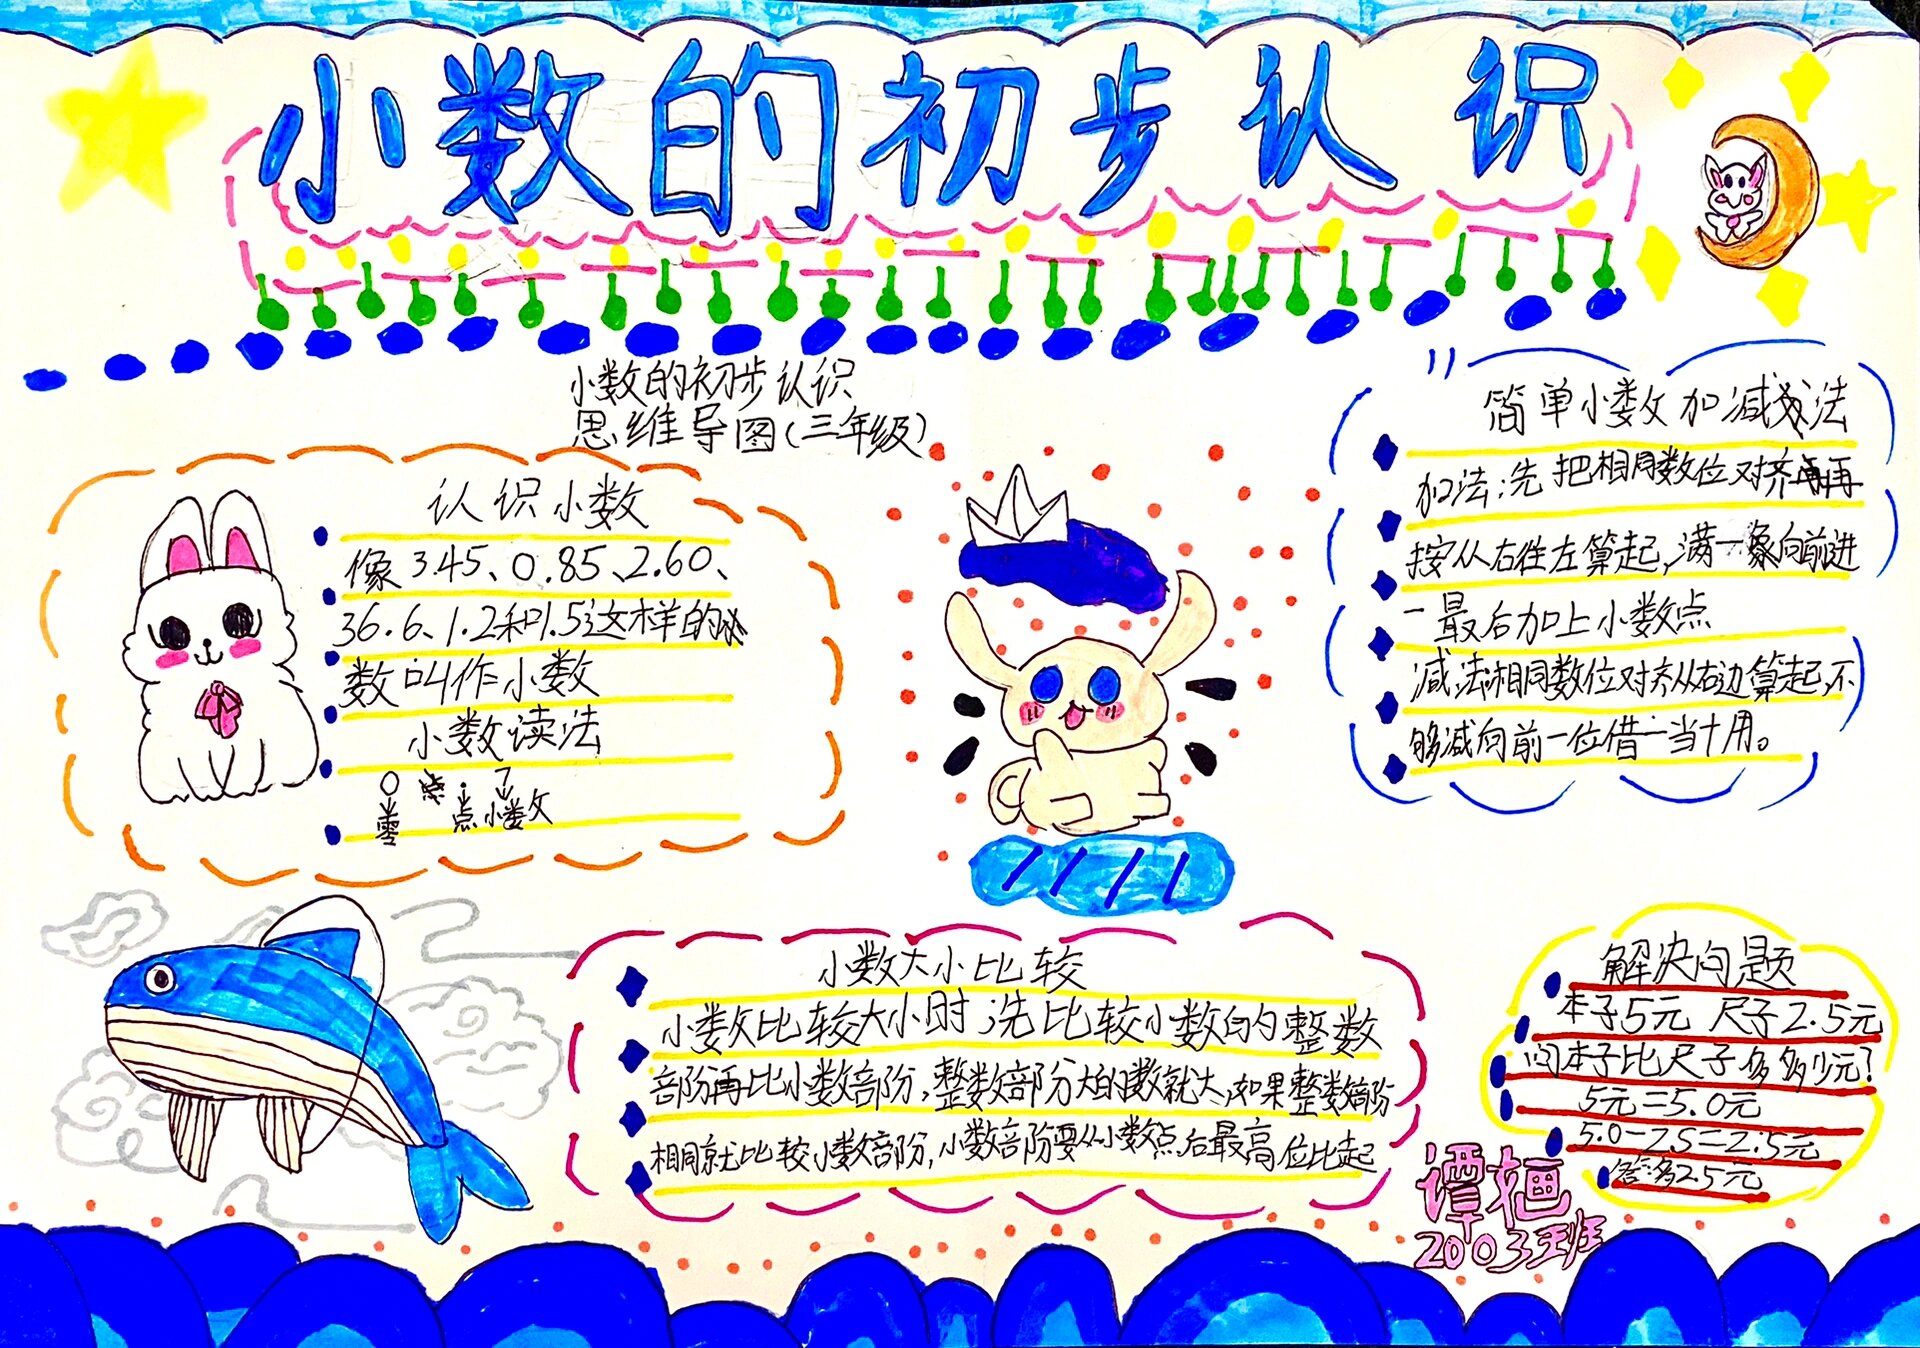 小数的初步认识
小数的初步认识
思维导图(三年级)
认识小数
像3.45、0.85、2.60、
36.6、1.2和1.5这样的
数叫作小数
小数读法
0 . 了
零 点 小数
简单小数加减法
加法:先把相同数位对齐再
按从右往左算起,满一象向前进
一最后加上小数点
减法相同数位对齐从右边算起,不
够减向前一位借一当十用。
小数大小比较
小数比较大小时;先比较小数的整数
部份再比小数部份,整数部分大的数就大,如果整数部份
相同就比较小数部份,小数部份要从小数点后最高位比起
解决问题
本子5元 尺子2.5元
问本子比尺子多多少元?
5元=5.0元
5.0-2.5=2.5元
答:多2.5元
谭
2003班